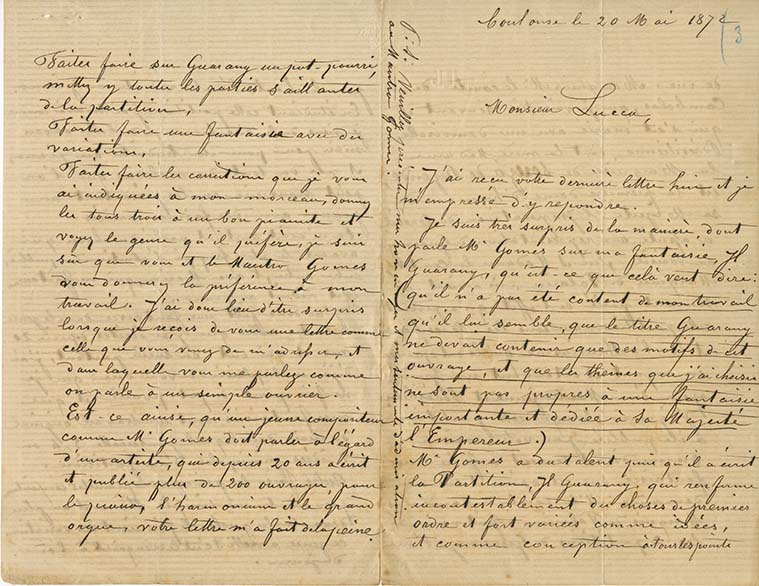 Toulouse le 20 Mai 1872
3
Monsieur Lucca,
J'ai reçu votre dernière lettre hier et je
m'empresse d'y repondre.
Je suis très surpris de la manière, dont
parle Mr Gomes sur ma fantaisie, Il
Guarany, qu'est-ce que celà veut dire:
qu'il n'a pas été content de mon travail
qu'il lui semble, que le titre Guarany
ne devait contenir que des motifs de cet
ouvrage, et que les thèmes que j'ai choisis
ne sont pas propres à une fantaisie
importante et dediée à Sa Majesté
l'Empereur.)
Mr Gomes a du talent puis qu'il a écrit
la Partition, Il Guarany, qui renferme
incontestablement des choses de premier
ordre et fort variées comme idées,
et comme conception à tous les points
Faites faire sur Guarany un pot-pourri,
mettez y toutes les parties saillantes
de la partition,
Faites faire une fantaisie avec des
variations,
Faites faire les corrections que je vous
ai indiquées à mon morceau, donnez
les tous trois à un bon pianiste et
voyez le genre qu'il préfère, je suis
sûr que vous et le Maestro Gomes
vous donnerez la préférence à mon
travail. J'ai donc lieu d'être surpris
lorsque je reçois de vous une lettre comme
celle que vous venez de m'adresser, et
dans laquelle vous me parlez comme
on parle à un simple ouvrier.
Est-ce ainsi, qu'un jeune compositeur
comme Mr Gomes doit parler à l'égard
d'un artiste, qui depuis 20 ans a écrit
et publié plus de 200 ouvrages, pour
le piano, l'harmonium et le grand
orgue, votre lettre m'a fait de la peine.
P.S. Veuillez presenter mes hommages et mes sentiments d'admiration
au Maestro Gomes.